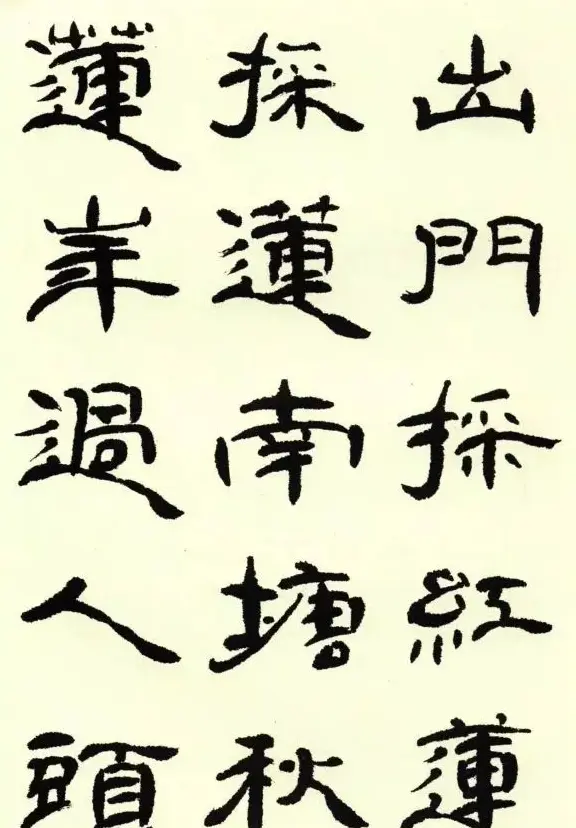 出門採紅蓮
採蓮南塘秋
蓮華過人頭